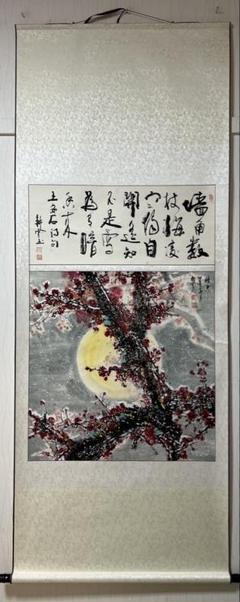 墙角数
枝梅凌
寒独自
開遥知
不是雪
為有暗
香来
王安石诗句